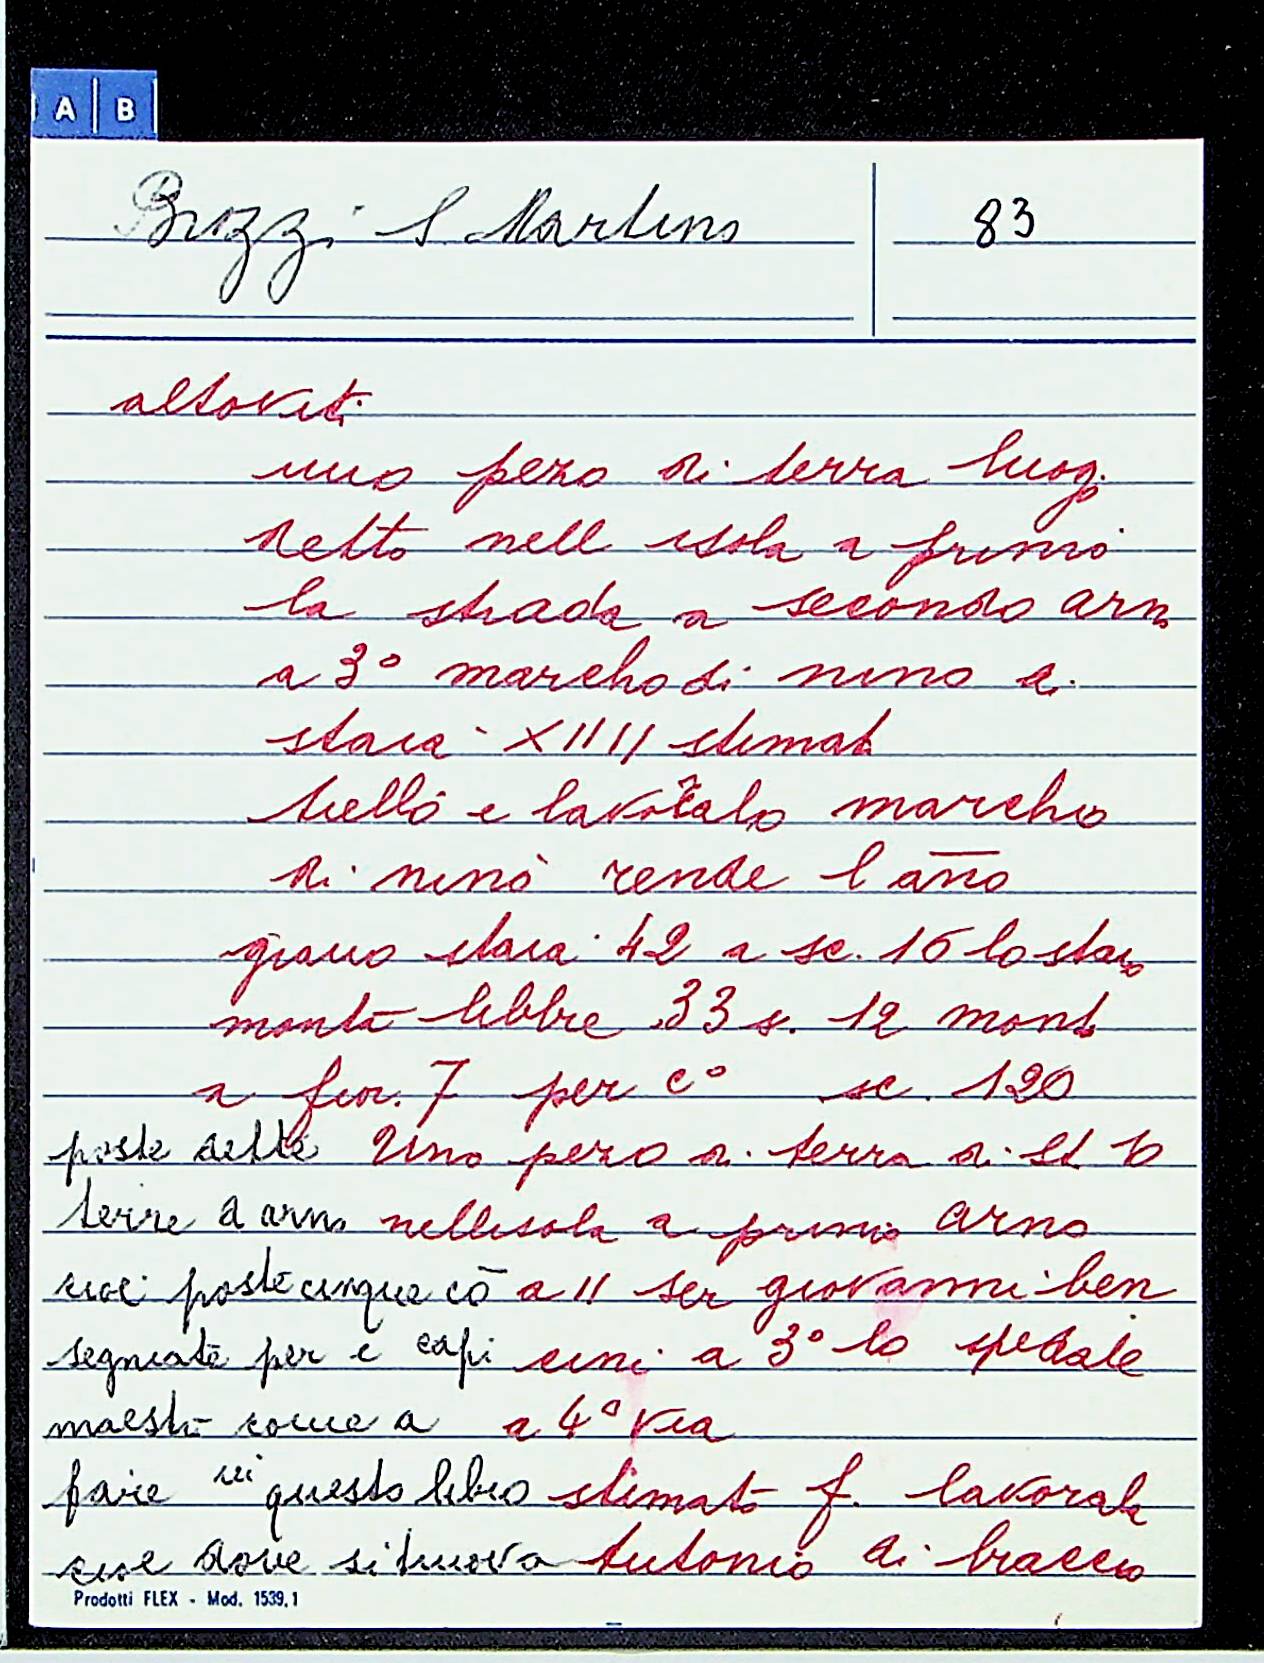 A B
Brozzi S Martino
83
altoviti
uno pezo di terra luog.
detto nell isola a primo
la strada a secondo arno
a 3º marcho di nino a.
staia XIIII stimat
tello e lavoralo marcho
di nino rende l año
grano staia 42 a sc. 16 lo staio
monta libbre 33 s. 12 mont
a fior. 7 per cº sc. 120
poste dette Uno pezo di terra di st 10
terre d arno nellisola a primo arno
cioe poste cinque co a II ser giovanni ben
segniate per e capi cini a 3º lo spedale
maestri come a a 4º via
paie in questo libro stimato f. lavorala
cioe dove si truova Antonio di braccio
Prodotti FLEX - Mod. 1539.1